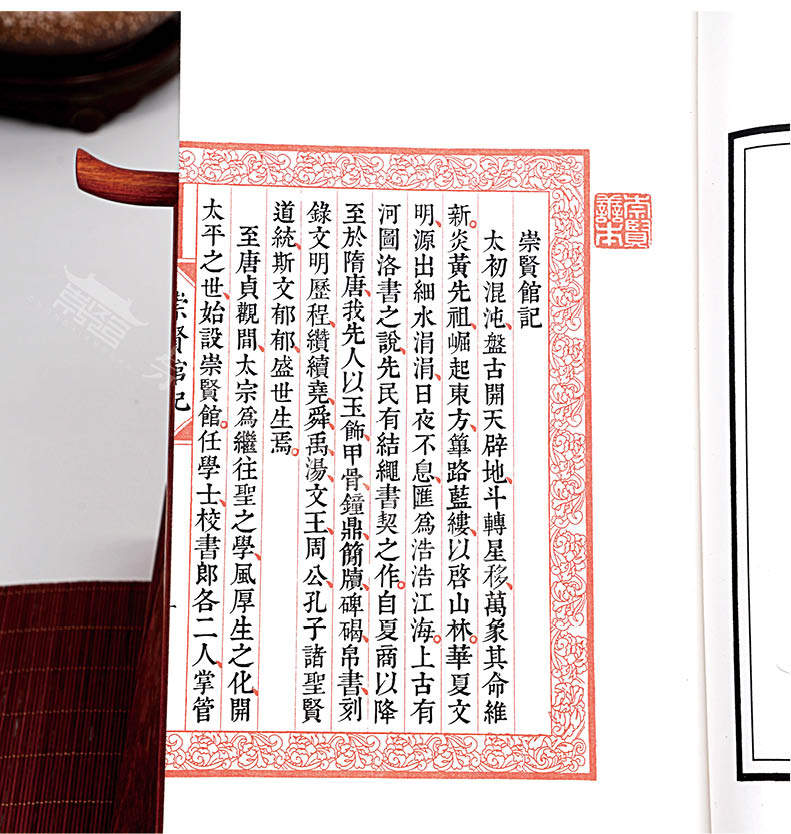 崇賢善本
崇賢館記
太初混沌、盤古開天辟地、斗轉星移、萬象其命維
新。炎黃先祖、崛起東方、篳路藍縷、以啓山林。華夏文
明、源出細水涓涓、日夜不息、匯爲浩浩江海。上古有
河圖洛書之說、先民有結繩書契之作。自夏商以降
至於隋唐、我先人以玉飾、甲骨、鐘鼎、簡牘、碑碣、帛書、刻
錄文明歷程、纘續堯、舜、禹、湯、文王、周公、孔子諸聖賢
道統、斯文郁郁、盛世生焉。
至唐貞觀間、太宗爲繼往聖之學、風厚生之化、開
太平之世、始設崇賢館。任學士、校書郎各二人、掌管
崇賢館記
一